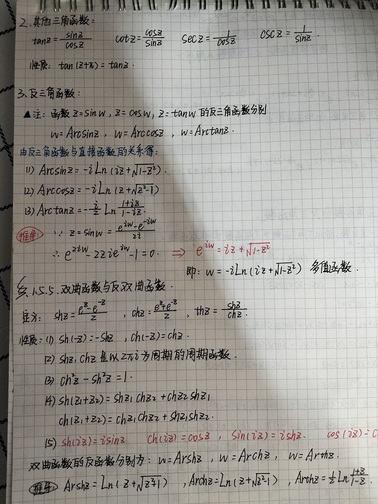 2. 其他三角函数:
tanz = sinz/cosz   cotz = cosz/sinz   secz = 1/cosz   cscz = 1/sinz.
性质: tan(z+π) = tanz.
3. 反三角函数:
▲注: 函数 z=sinw, z=cosw, z=tanw 的反三角函数分别
w=Arcsinz, w=Arccosz, w=Arctanz.
由反三角函数与直接函数的关系得:
(1) Arcsinz = -iLn(iz+√1-z²).
(2) Arccosz = -iLn(z+√z²-1)
(3) Arctanz = -i/2 Ln 1+iz/1-iz.
推导: ∵ z=sinw = e^iw-e^-iw/2i
∴ e^2iw-2zie^iw-1=0. ⇒ e^iw = iz+√1-z²
即: w=-iLn(iz+√1-z²) 多值函数.
§1.5.5. 双曲函数与反双曲函数.
定义: shz = e^z-e^-z/2, chz = e^z+e^-z/2, thz = shz/chz.
性质: (1) sh(-z)=-shz, ch(-z)=chz.
(2) shz, chz 是以2πi为周期的周期函数.
(3) ch²z-sh²z=1.
(4) sh(z₁+z₂) = shz₁chz₂+chz₂shz₁
ch(z₁+z₂) = chz₁chz₂+shz₁shz₂.
(5) sh(iz)=isinz   ch(iz)=cosz, sin(iz)=ishz. cos(iz)=c
双曲函数的反函数分别为: w=Arshz, w=Archz, w=Arthz.
推导 Arshz=Ln(z+√z²+1), Archz=Ln(z+√z²-1), Arthz=½Ln 1+z/1-z.